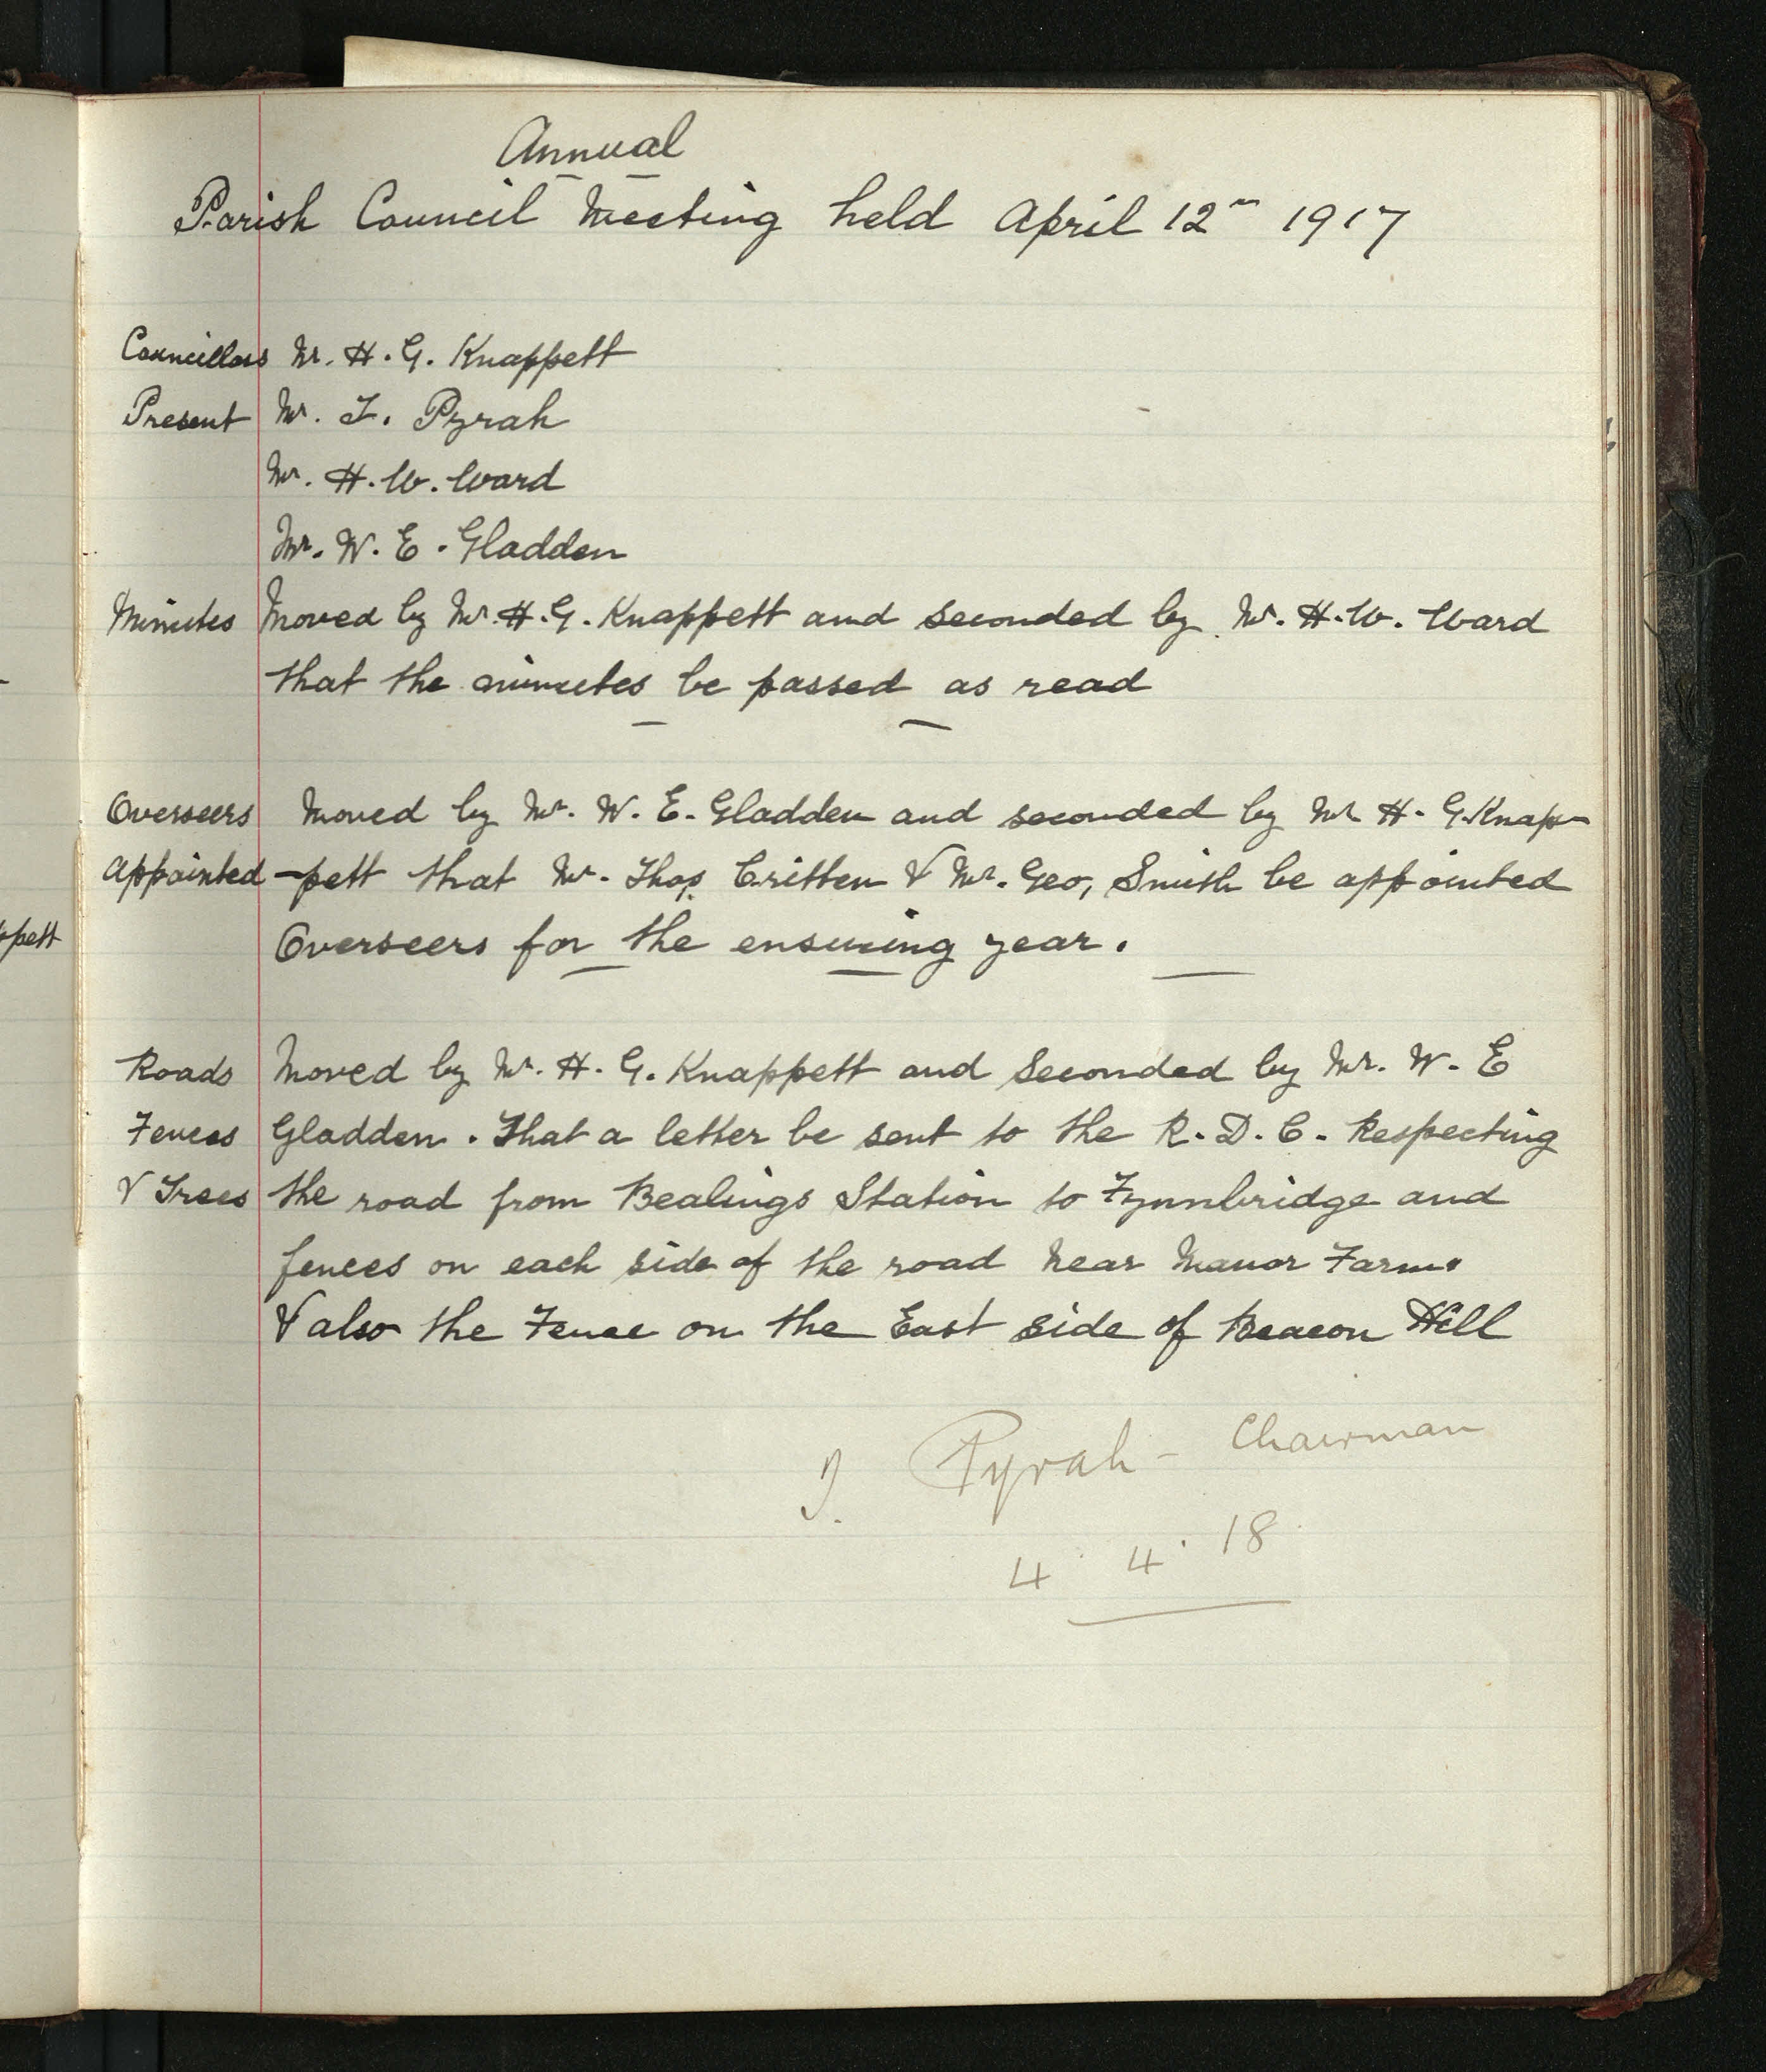 Annual
Parish Council Meeting held April 12th 1917
Councillors Mr. H. G. Knappett
Present Mr. I. Pyrah
Mr. H. W. Ward
Mr. W. E. Gladden
Minutes Moved by Mr. H. G. Knappett and seconded by Mr. H. W. Ward
that the minutes be passed as read
Overseers Moved by Mr. W. E. Gladden and seconded by Mr H. G. Knap-
ppett
Appointed -pett that Mr. Thos. Critten & Mr. Geo, Smith be appointed
Overseers for the ensuing year.
Roads Moved by Mr. H. G. Knappett and Seconded by Mr. W. E
Fences Gladden. That a letter be sent to the R. D. C. Respecting
& Trees the road from Bealings Station to Fynnbridge and
fences on each side of the road near Manor Farm.
& also the Fence on the East side of Beacon Hill
I. Pyrah - Chairman
4. 4. 18